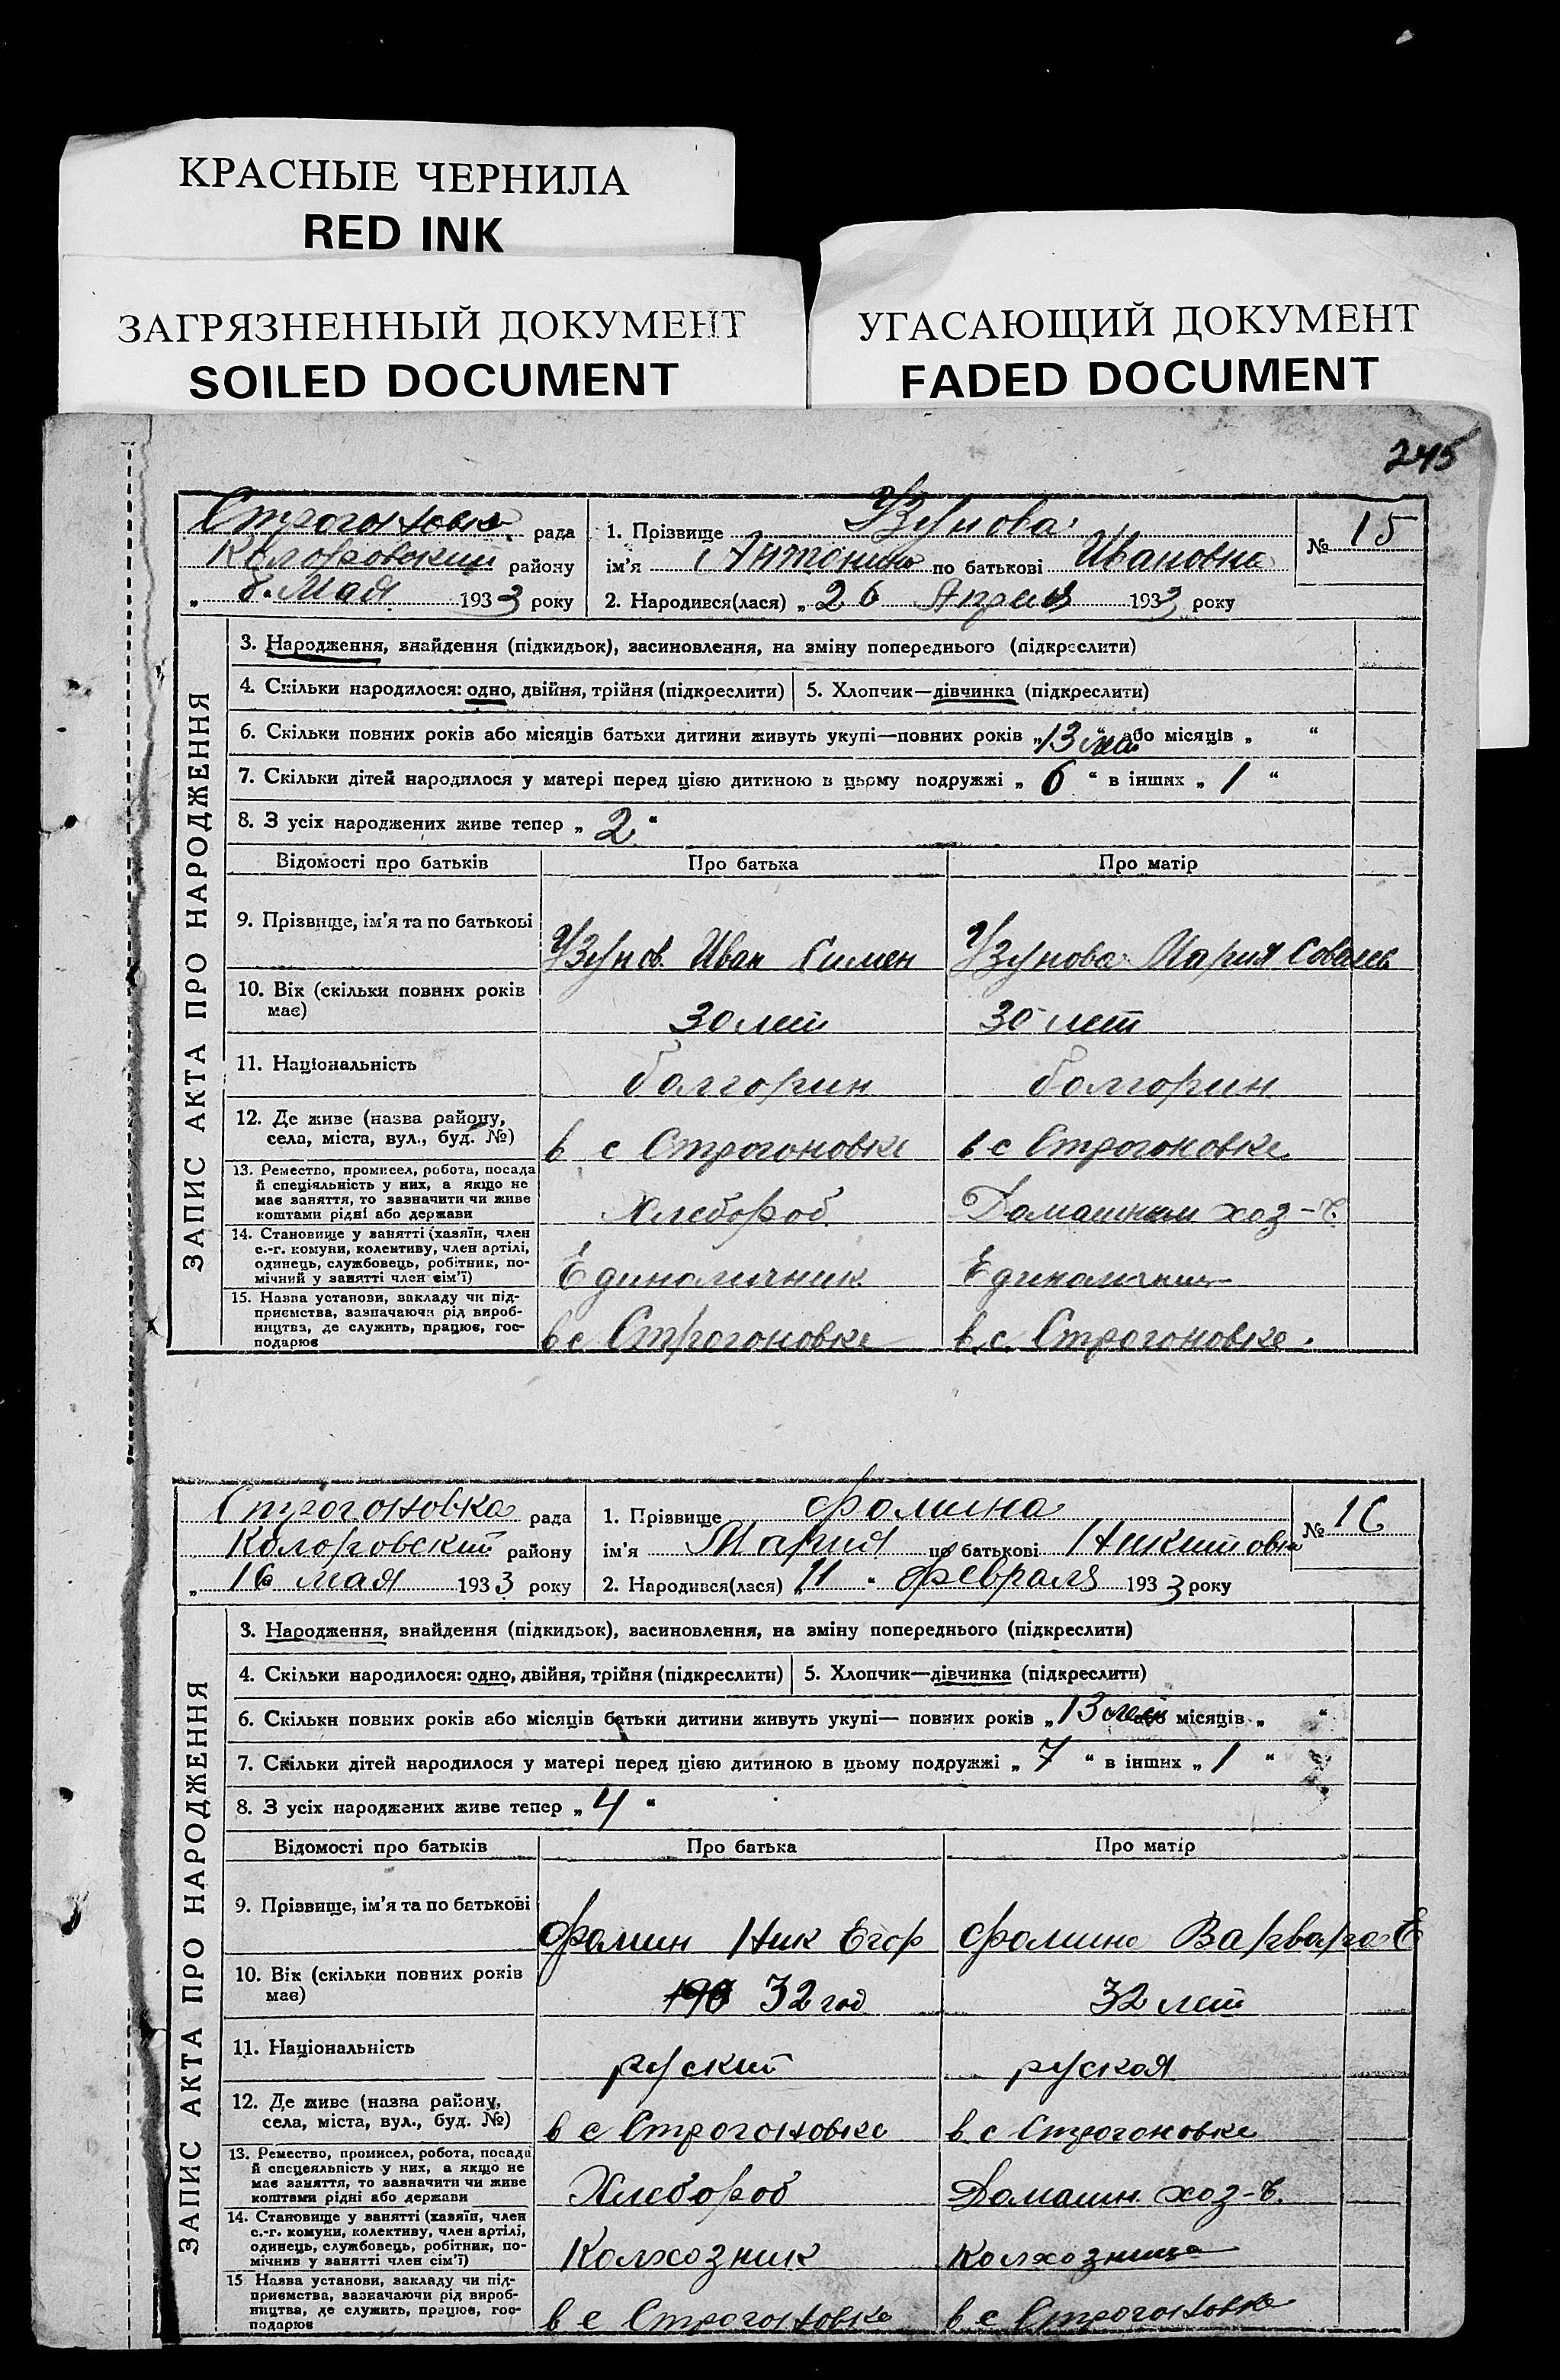 КРАСНЫЕ ЧЕРНИЛА
RED INK
ЗАГРЯЗНЕННЫЙ ДОКУМЕНТ
SOILED DOCUMENT
УГАСАЮЩИЙ ДОКУМЕНТ
FADED DOCUMENT
245
Строгоновка рада
Колоровский району
„ 8. Мая 1933 року
1. Прізвище Узунова
ім'я Антонина по батькові Ивановна
2. Народився(лася) „ 26 Апреля 1933 року
№ 15
ЗАПИС АКТА ПРО НАРОДЖЕННЯ
3. Народження, знайдення (підкидьок), засиновлення, на зміну попереднього (підкреслити)
4. Скільки народилося: одно, двійня, трійня (підкреслити) 5. Хлопчик—дівчинка (підкреслити)
6. Скільки повних років або місяців батьки дитини живуть укупі—повних років „ 13 лет або місяців „ “
7. Скільки дітей народилося у матері перед цією дитиною в цьому подружжі „ 6 “ в інших „ 1 “
8. З усіх народжених живе тепер „ 2 “
Відомості про батьків Про батька Про матір
9. Прізвище, ім'я та по батькові Узунов. Иван Симен Узунова Мария Совелев
10. Вік (скільки повних років
має) 30 лет 30 лет
11. Національність болгорин болгорин
12. Де живе (назва району,
села, міста, вул., буд. №) в с Строгоновке в с Строгоновке
13. Ремество, промисел, робота, посада
й спеціяльність у них, а якщо не
має заняття, то зазначити чи живе
коштами рідні або держави Хлебороб Домашним хоз-в.
14. Становище у занятті (хазяїн, член
с.-г. комуни, колективу, член артілі,
одинець, службовець, робітник, по-
мічний у занятті член сім'ї) Единоличник Единолични
15. Назва установи, закладу чи під-
приємства, зазначаючи рід вироб-
ництва, де служить, працює, гос-
подарює в с Строгоновке в с. Строгоновке.
Строгоновка рада
Колоровский району
„ 16 мая 1933 року
1. Прізвище Фомина
ім'я Мария по батькові Никитовна
2. Народився(лася) „ 11 “ Февраля 1933 року
№ 16
ЗАПИС АКТА ПРО НАРОДЖЕННЯ
3. Народження, знайдення (підкидьок), засиновлення, на зміну попереднього (підкреслити)
4. Скільки народилося: одно, двійня, трійня (підкреслити) 5. Хлопчик—дівчинка (підкреслити)
6. Скільки повних років або місяців батьки дитини живуть укупі— повних років „ 13 лет або місяців „ “
7. Скільки дітей народилося у матері перед цією дитиною в цьому подружжі „ 7 “ в інших „ 1 “
8. З усіх народжених живе тепер „ 4 “
Відомості про батьків Про батька Про матір
9. Прізвище, ім'я та по батькові Фомин Ник Егор Фомина Варвара Е
10. Вік (скільки повних років
має) 32 год 32 лет
11. Національність руский руская
12. Де живе (назва району,
села, міста, вул., буд. №) в с Строгоновке в с Строгоновке
13. Ремество, промисел, робота, посада
й спецеяльність у них, а якщо не
має заняття, то зазначити чи живе
коштами рідні або держави Хлебороб Домашн. хоз-в.
14. Становище у занятті (хазяїн, член
с.-г. комуни, колективу, член артілі,
одинець, службовець, робітник, по-
мічнив у занятті член сім'ї) Колхозник колхозница
15 Назва установи, закладу чи під-
приємства, зазначаючи рід вироб-
ництва, де служить, працює, гос-
подарює в с Строгоновке в с Строгоновке